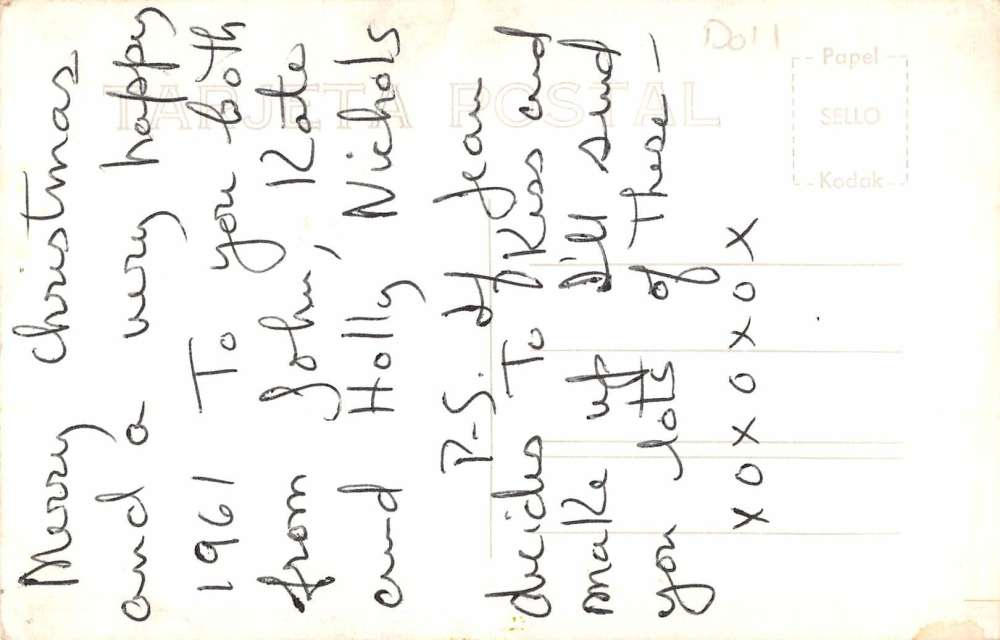 Merry christmas
and a very happy
1961 To you both
from John, Kate
and Holly Nichols
P-S. If Jean
decides To Kiss and
make up I'll send
you lots of These-
x o x o x o x
TARJETA POSTAL
Doll
Papel
SELLO
Kodak